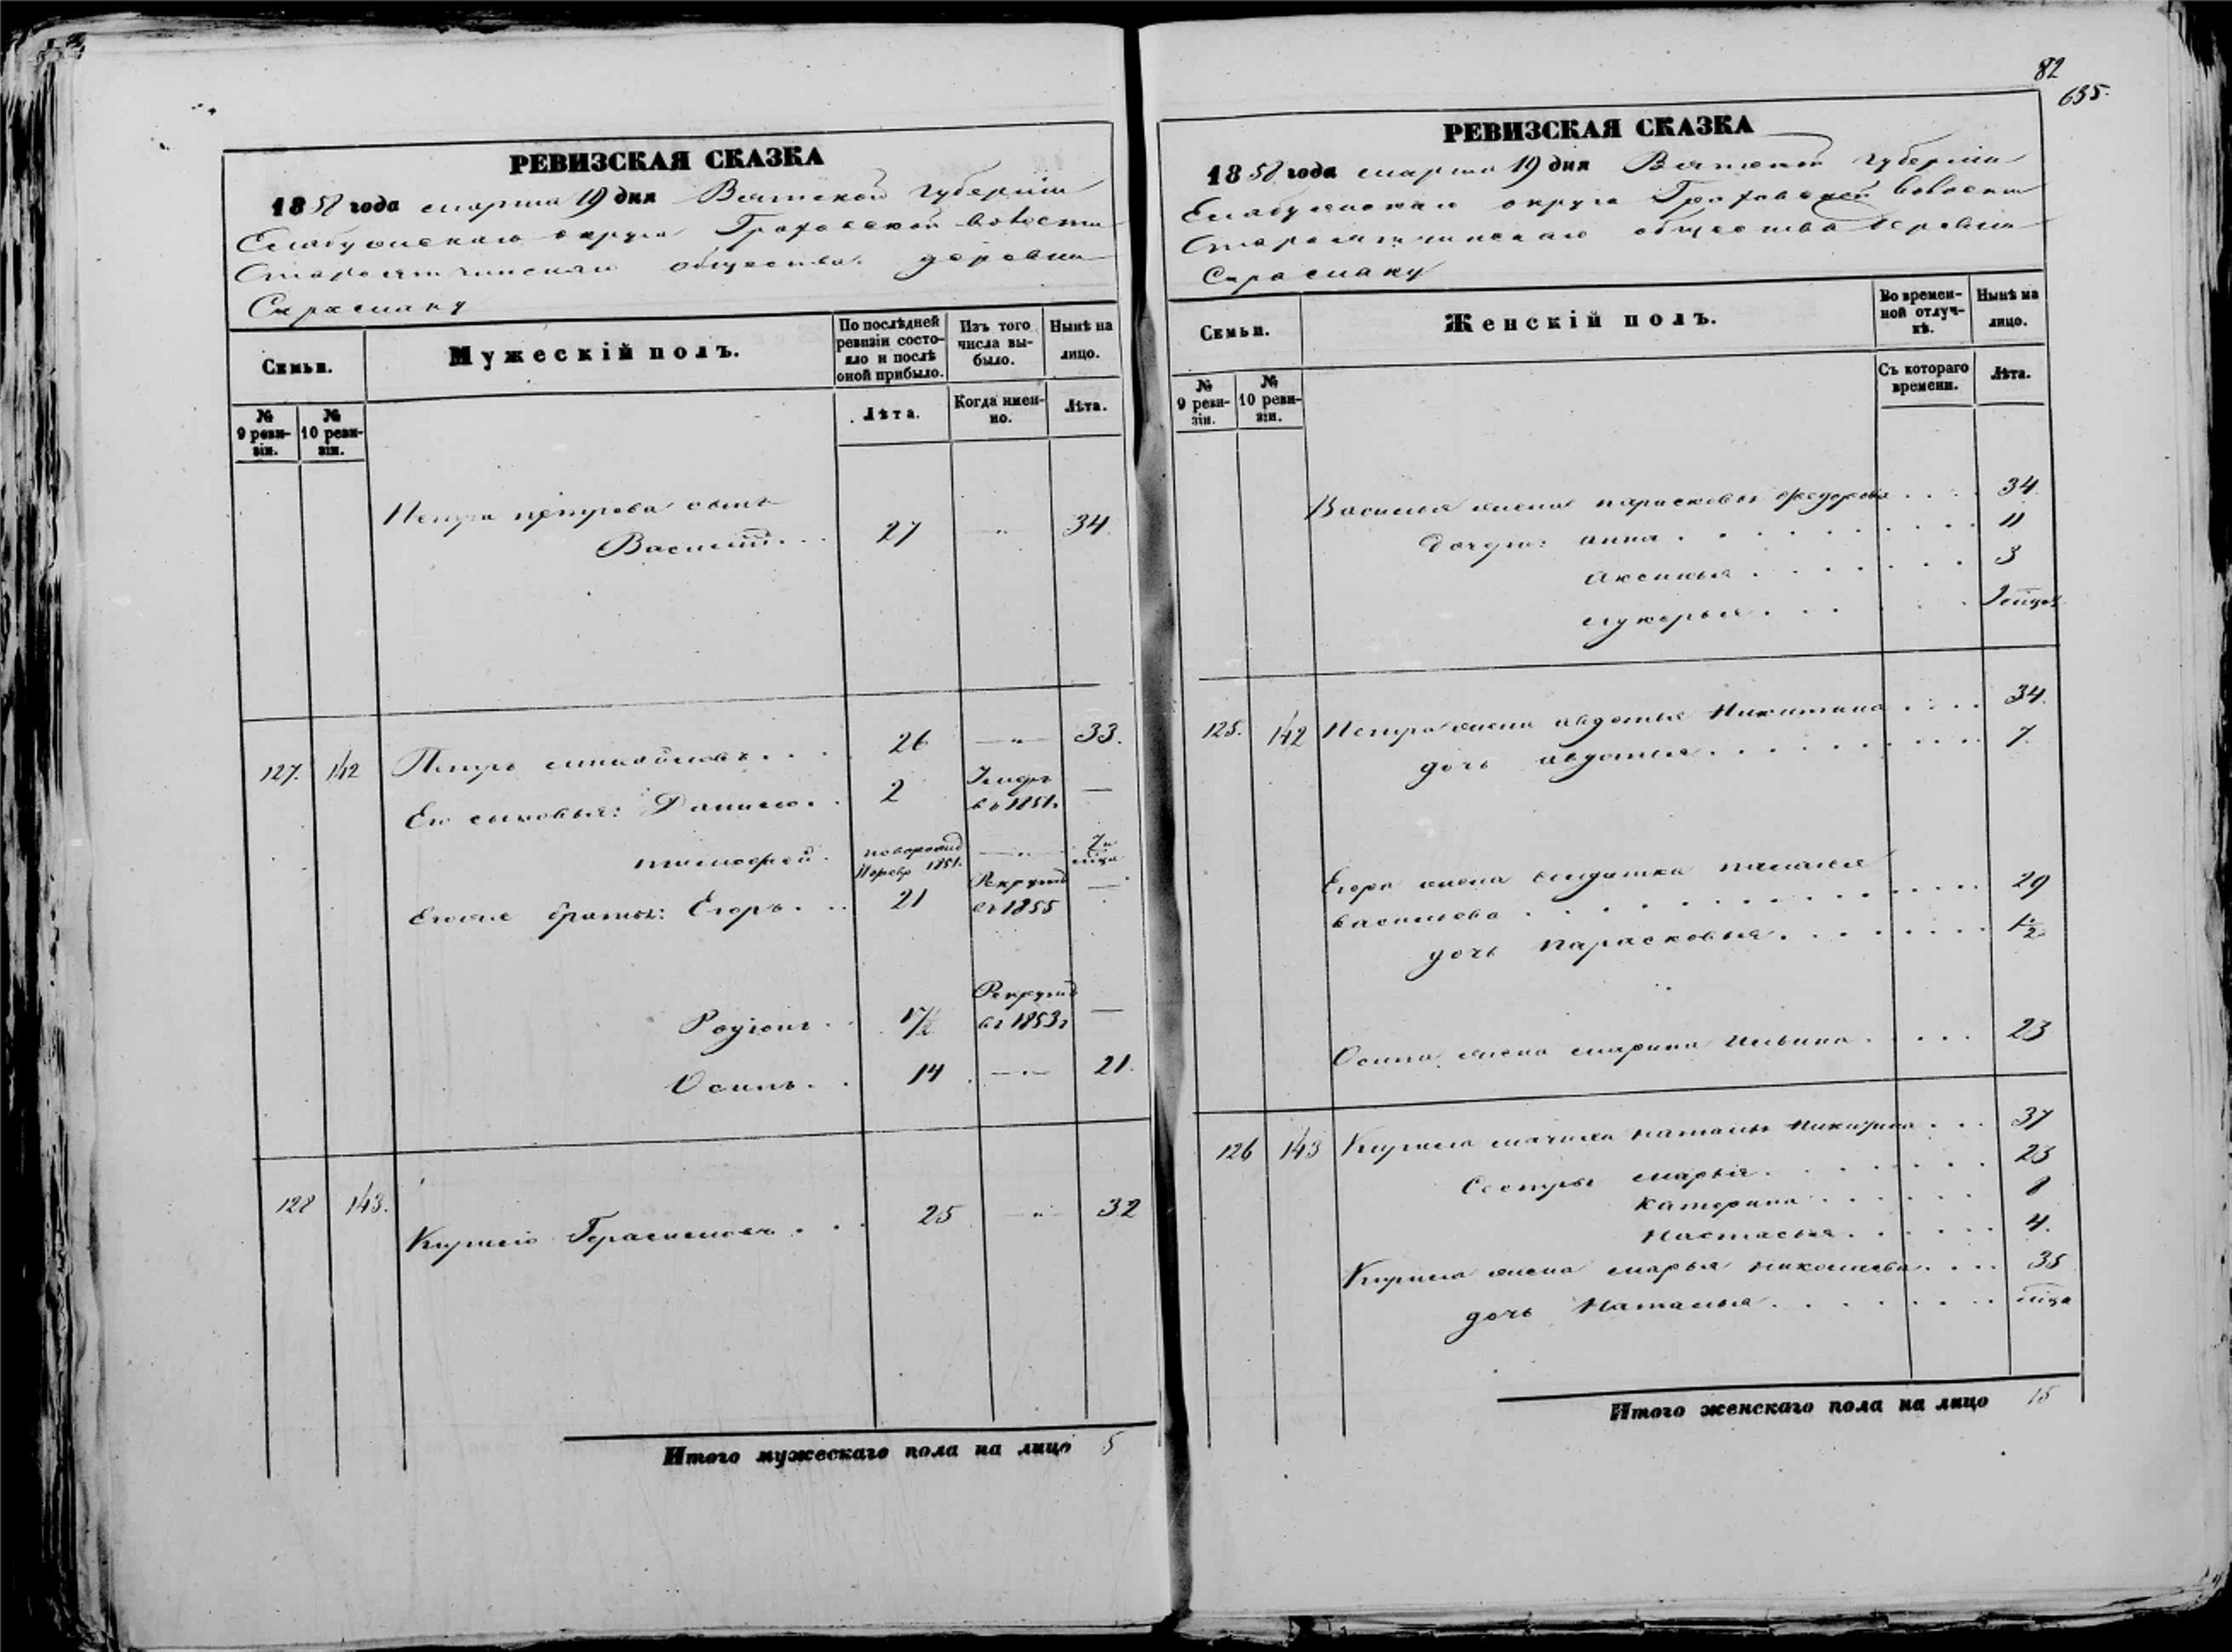 РЕВИЗСКАЯ СКАЗКА
1858 года марта 19 дня Вятской губернiи
Елабужскаго округа Граховской волости
общества деревни
Сарамаку
Семьи.
Мужескiй полъ.
По послѣдней ревизiи состояло и послѣ оной прибыло.
Изъ того числа выбыло.
Нынѣ на лицо.
№ 9 ревизiи.
№ 10 ревизiи.
Лѣта.
Когда именно.
Лѣта.
Петра петрова сынъ
Василiй 27 —"— 34
127. 142 Петръ михайловъ 26 —"— 33.
Его сыновья: Данило 2 Умеръ въ 1851г —
тимофей новорожд —"— 7м
Ноябр 1851. мѣца
Егоже братья: Егоръ 21 Рекрутъ въ 1855 —
Родiонъ 17½ Рекрутъ въ 1853г —
Осипъ 14 —"— 21.
128 143. Кирило Герасимовъ 25 —"— 32
Итого мужескаго пола на лицо 5
82
635.
РЕВИЗСКАЯ СКАЗКА
1858 года марта 19 дня Вятской губернiи
Елабужскаго округа Граховской волости
общества деревни
Сарамаку
Семьи.
Женскiй полъ.
Во временной отлучкѣ.
Нынѣ на лицо.
№ 9 ревизiи.
№ 10 ревизiи.
Съ котораго времени.
Лѣта.
Василья жена парасковья федорова 34
дочери: анна 11
аксинья 3
лукерья
125. 142 Петра жена авдотья Никитина 34.
дочь авдотья 7.
Егора жена солдатка
василева 29
дочь парасковья ½
Осипа жена марина Ильина 23
126 143 Кирила мачиха наталья 37
Сестры марья 23
катерина 8
настасья 4.
Кирила жена марья николаева 35
дочь Наталья мѣца
Итого женскаго пола на лицо 15